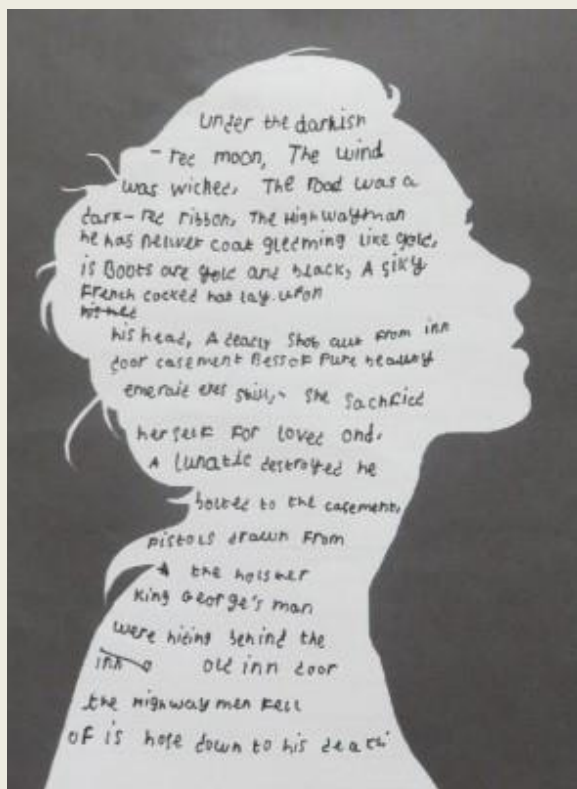 under the darkish
- red moon, The wind
was wicked, The road was a
dark-red ribbon, The Highwayman
he has coat gleeming like gold,
is Boots are gold and black, A silky
French cocked hat lay upon
his head, A deadly shot out from inn
door casement Bess of Pure
emerald eyes still, she sacrfice
herself For loved ond.
A lunatic destroyed he
bolted to the casement,
pistols drawn From
the holster
King George's man
were hiding behind the
inn old inn door
the highwaymen Fell
of is hose down to his death